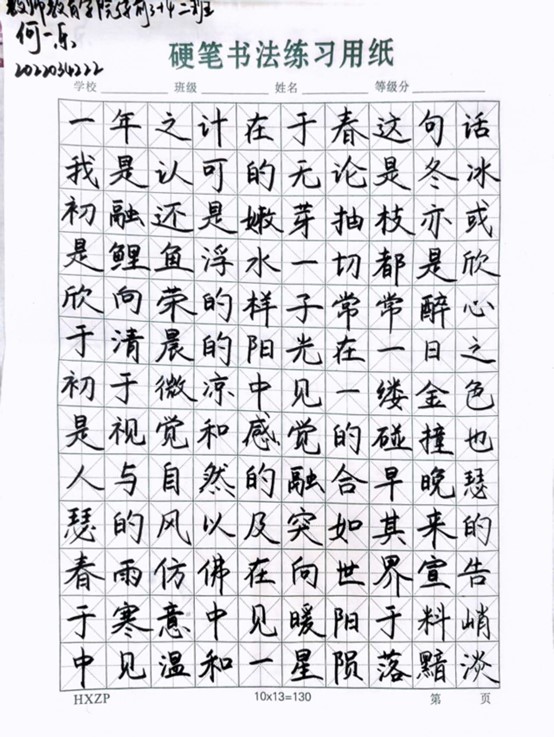 教师教育学院学前3+4二班
何一乐
2022034222
硬笔书法练习用纸
学校 班级 姓名 等级分
一年之计在于春这句话
我是认可的无论是冬冰
初融还是嫩芽抽枝亦或
是鲤鱼浮水一切都是欣
欣向荣的样子常常醉心
于清晨的阳光在一日之
初于微凉中见一缕金色
是视觉和感觉的碰撞也
人与自然的融合早晚瑟
瑟的风以及突如其来的
春雨仿佛在向世界宣告
于寒意中见暖阳于料峭
中见温和一星陨落黯淡
HXZP 10x13=130 第 页